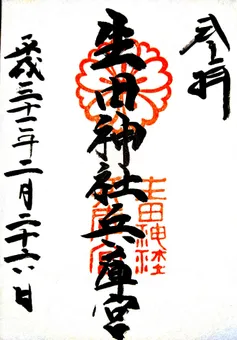 奉拝
生田神社兵庫宮
生田神社
平成三十二年二月二十六日